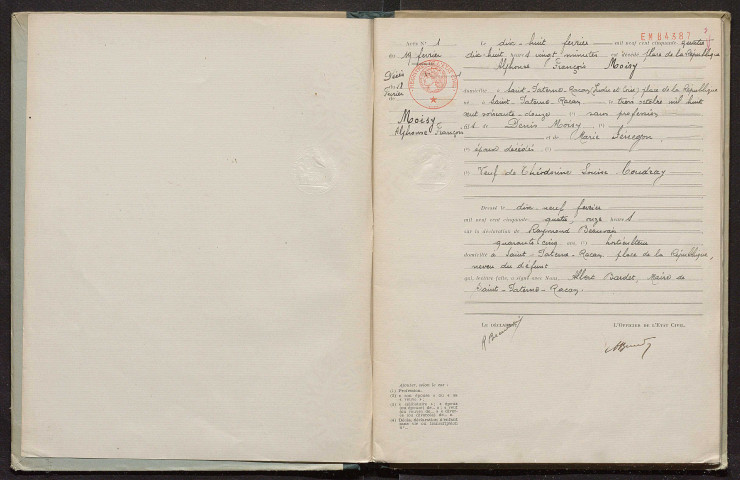 EM 84387
Acte N° 1
19 février
Décès
Février
Moisy
Alphonse François
Le dix-huit février mil neuf cent cinquante quatre
dix huit heures vingt minutes est décédé place de la République
Alphonse François Moisy
domicilié à Saint-Paterne-Racan (Indre et Loire) place de la République
né à Saint-Paterne-Racan le trois octobre mil huit
cent soixante-douze (1) sans profession
fils de Denis Moisy
et de Marie
(2) époux décédés (2)
(3) Veuf de Théodorine Louise Coudray
Dressé le dix-neuf février
mil neuf cent cinquante quatre onze heures
sur la déclaration de Raymond Beauvais
quarante cinq ans (1) horticulteur
domicilié à Saint-Paterne-Racan place de la République,
neveu du défunt
qui, lecture faite, a signé avec Nous, Albert Bardet, Maire de
Saint-Paterne-Racan.
Le Déclarant
L'Officier de l'Etat Civil,
Ajouter, selon le cas :
(1) Profession.